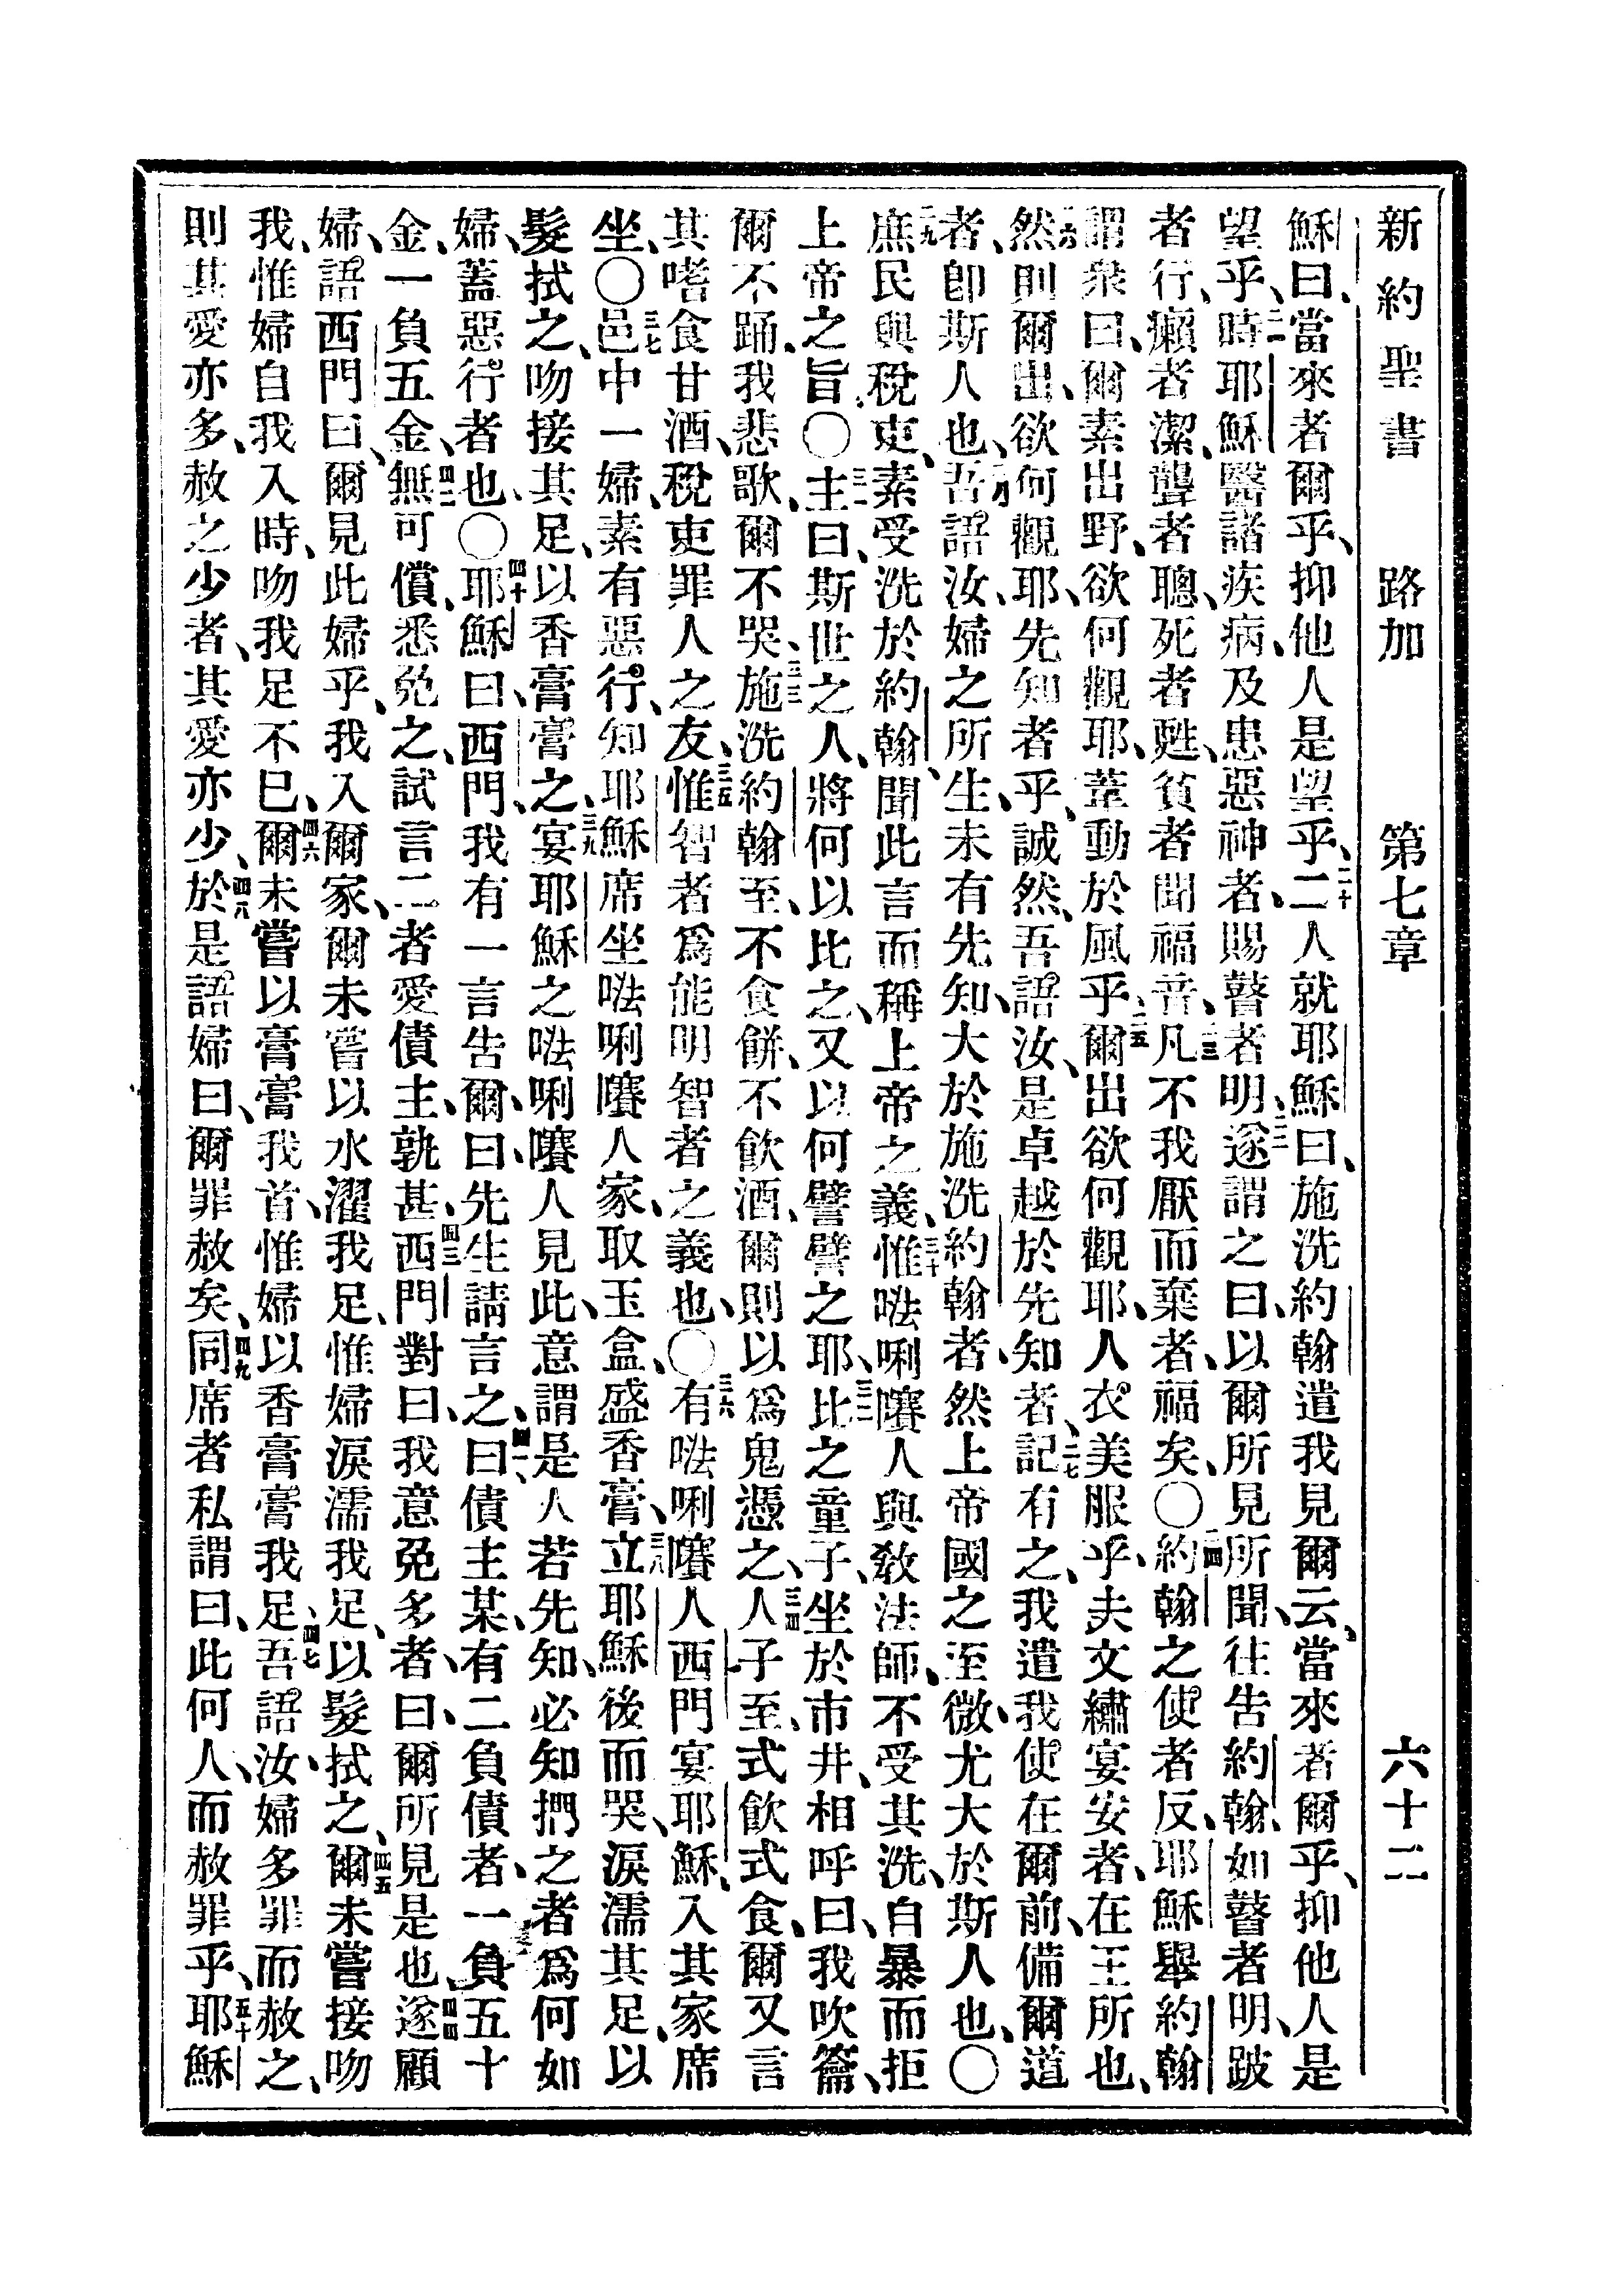 新約聖書 路加 第七章 六十二
穌曰、當來者爾乎、抑他人是望乎、二十二人就耶穌曰、施洗約翰遣我見爾云、當來者爾乎、抑他人是
望乎、二一時耶穌醫諸疾病、及患惡神者、賜瞽者明、二二遂謂之曰、以爾所見所聞、往告約翰、如瞽者明、跛
者行、癩者潔、聾者聰、死者甦、貧者聞福音、二三凡不我厭而棄者、福矣、〇二四約翰之使者反、耶穌舉約翰
謂衆曰、爾素出野、欲何觀耶、葦動於風乎、二五爾出欲何觀耶、人衣美服乎、夫文繡宴安者、在王所也、
二六然則爾出、欲何觀耶、先知者乎、誠然、吾語汝、是卓越於先知者、二七記有之、我遣我使在爾前、備爾道
者、卽斯人也、二八吾語汝、婦之所生、未有先知、大於施洗約翰者、然上帝國之至微、尤大於斯人也、〇
二九庶民與稅吏、素受洗於約翰、聞此言而稱上帝之義、三十惟㗠唎㘔人與敎法師、不受其洗、自暴而拒
上帝之旨、〇三一主曰、斯世之人、將何以比之、又以何譬譬之耶、三二比之童子、坐於市井、相呼曰、我吹籥、
爾不踊、我悲歌、爾不哭、三三施洗約翰至、不食餅、不飲酒、爾則以爲鬼憑之、三四人子至、式飲式食、爾又言
其嗜食甘酒、稅吏罪人之友、三五惟智者爲能明智者之義也、〇三六有㗠唎㘔人西門宴耶穌、入其家席
坐、〇三七邑中一婦、素有惡行、知耶穌席坐㗠唎㘔人家、取玉盒、盛香膏、三八立耶穌後而哭、淚濡其足、以
髮拭之、吻接其足、以香膏膏之、三九宴耶穌之㗠唎㘔人見此、意謂是人若先知、必知捫之者爲何如
婦、蓋惡行者也、〇四十耶穌曰、西門、我有一言告爾、曰、先生請言之、四一曰、債主某、有二負債者、一負五十
金、一負五金、四二無可償、悉免之、試言二者愛債主、孰甚、四三西門對曰、我意免多者、曰、爾所見是也、四四遂顧
婦、語西門曰、爾見此婦乎、我入爾家、爾未嘗以水濯我足、惟婦淚濡我足、以髮拭之、四五爾未嘗接吻
我、惟婦自我入時、吻我足不已、四六爾未嘗以膏膏我首、惟婦以香膏膏我足、四七吾語汝、婦多罪而赦之、
則其愛亦多、赦之少者、其愛亦少、四八於是語婦曰、爾罪赦矣、四九同席者私謂曰、此何人、而赦罪乎、五十耶穌